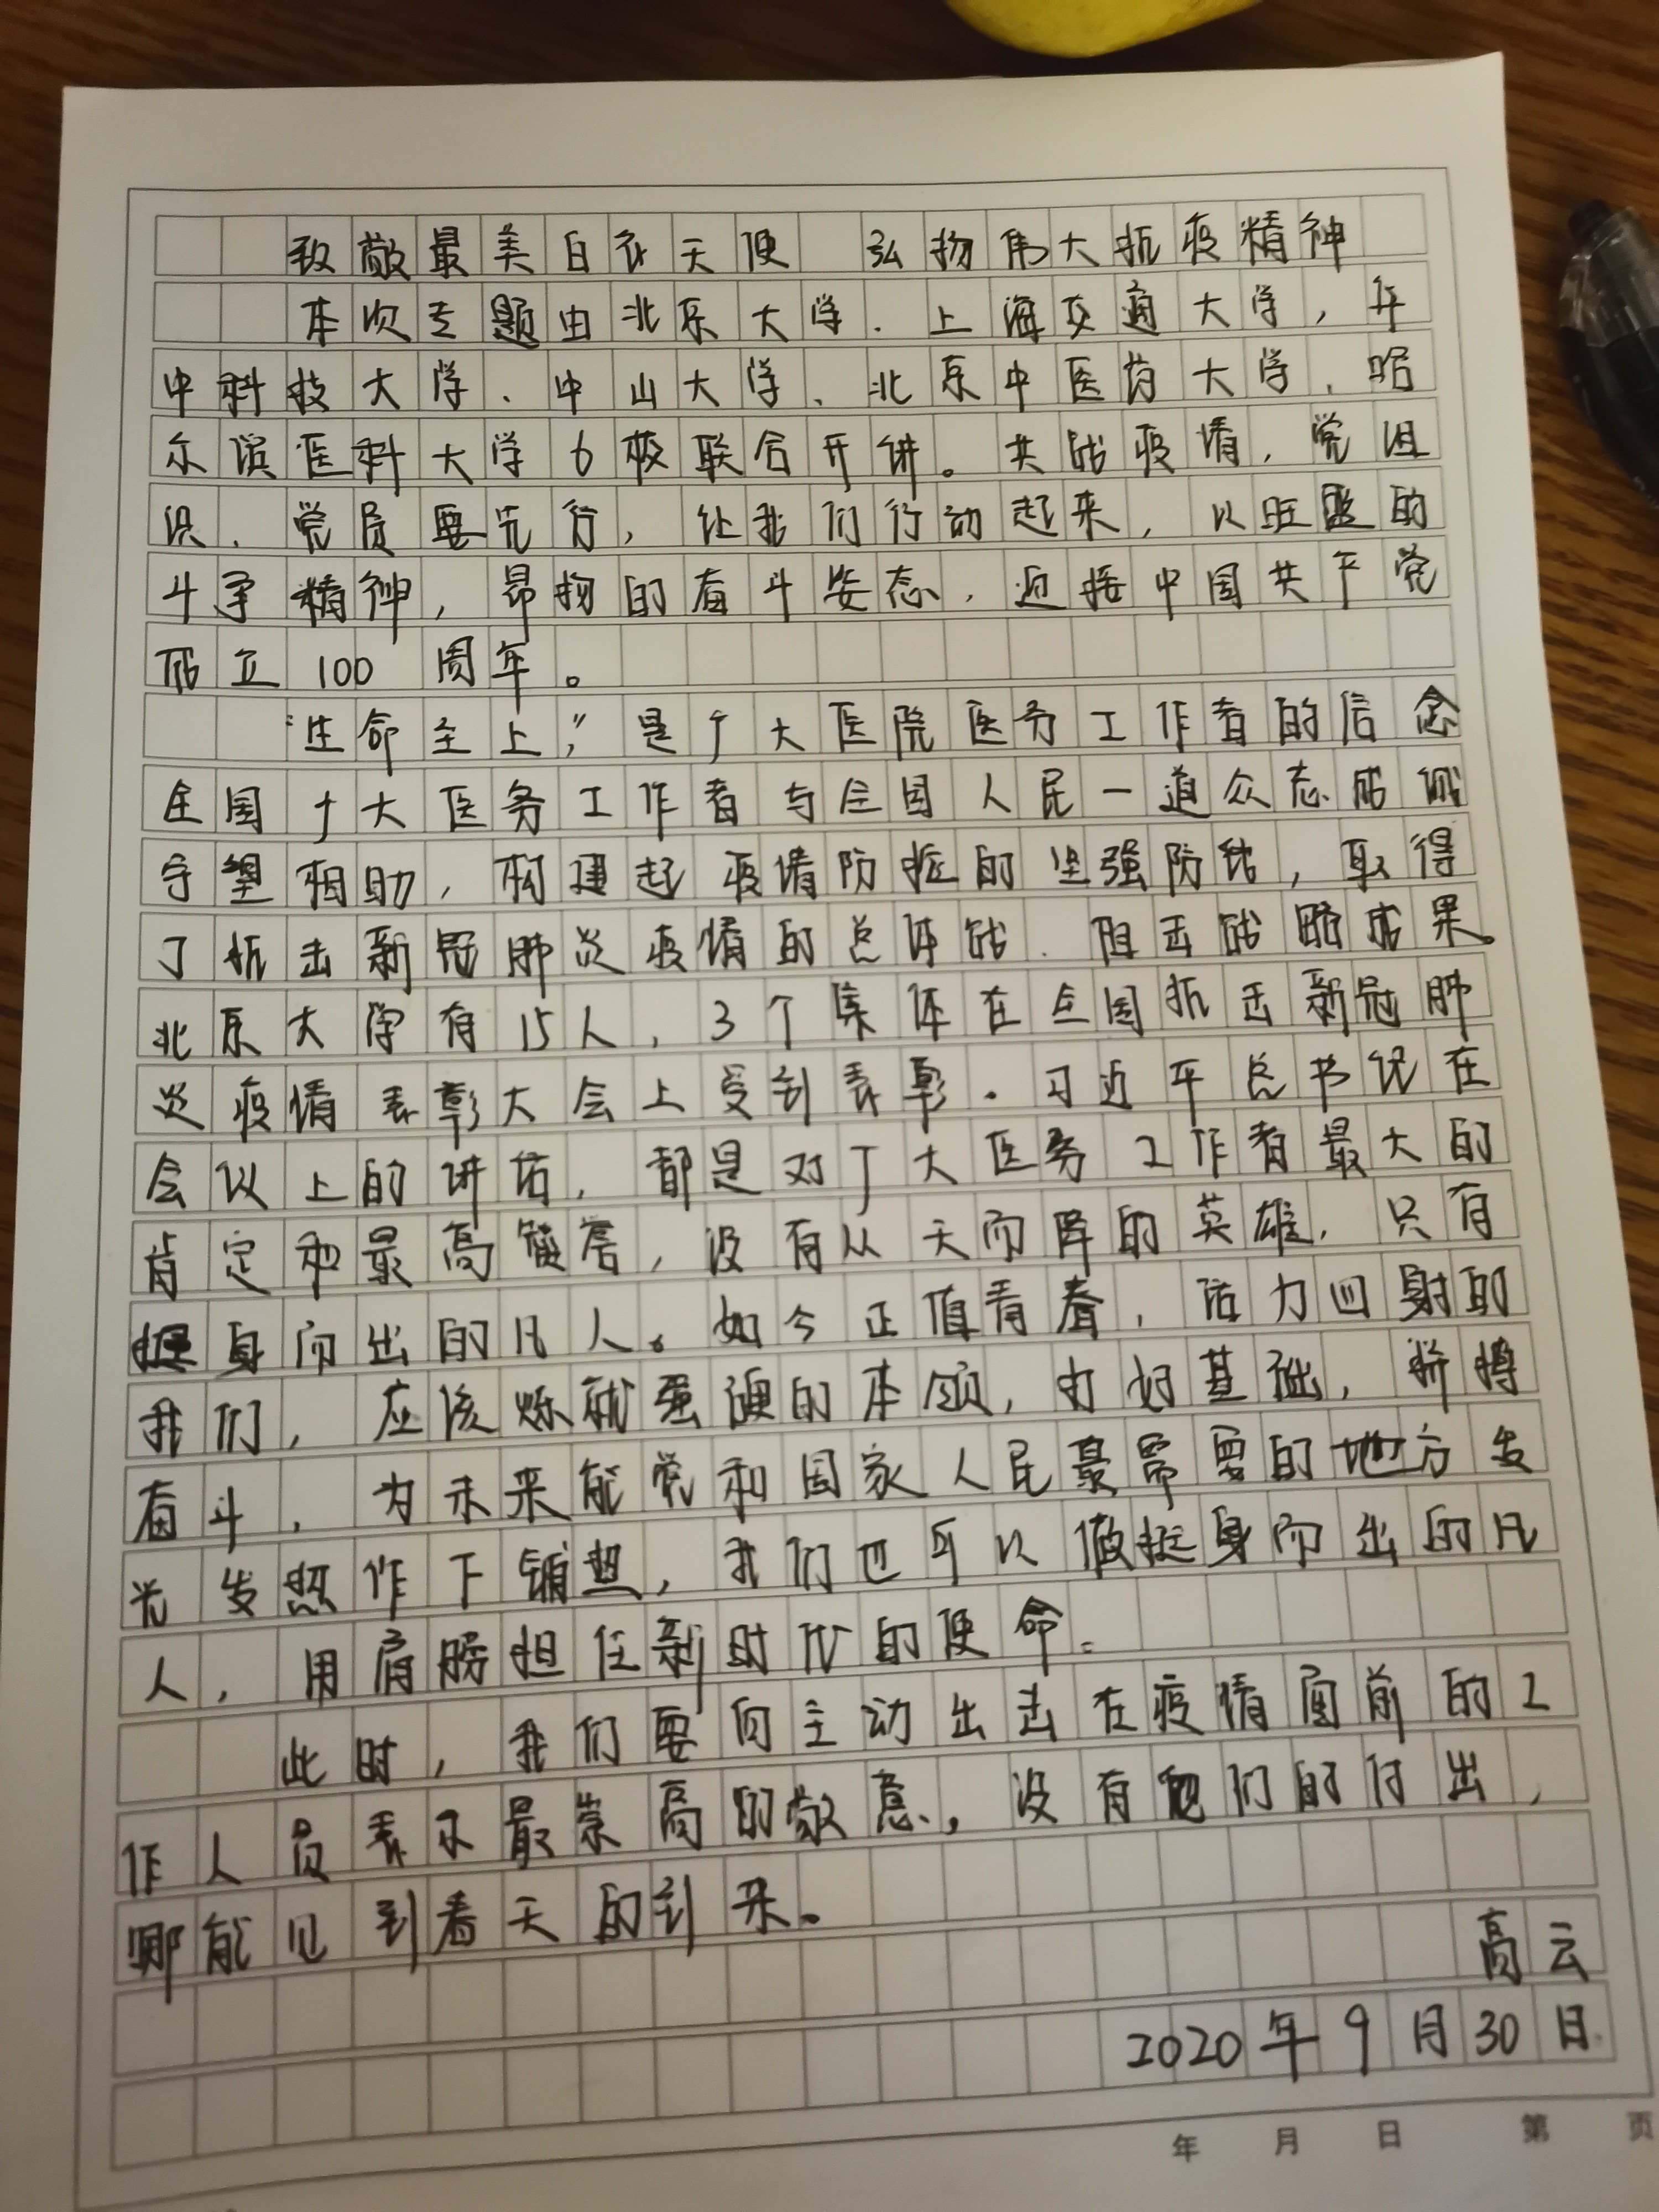 致敬最美白衣天使 弘扬伟大抗疫精神
本次专题由北京大学、上海交通大学,华
中科技大学、中山大学、北京中医药大学、哈
尔滨医科大学6校联合开讲。共战疫情,党组
织、党员要先行,让我们行动起来,以旺盛的
斗争精神,昂扬的奋斗姿态,迎接中国共产党
成立100周年。
“生命至上”,是广大医院医务工作者的信念
全国广大医务工作者与全国人民一道众志成城
守望相助,构建起疫情防控的坚强防线,取得
了抗击新冠肺炎疫情的总体战、阻击战略成果。
北京大学有15人,3个集体在全国抗击新冠肺
炎疫情表彰大会上受到表彰。习近平总书记在
会议上的讲话,都是对广大医务工作者最大的
肯定和最高赞誉,没有从天而降的英雄,只有
挺身而出的凡人。如今正值青春,活力四射的
我们,应该炼就强硬的本领,打好基础,拼搏
奋斗,为未来能党和国家人民最需要的地方发
光发热作下铺垫,我们也可以做挺身而出的凡
人,用肩膀担任新时代的使命。
此时,我们要向主动出击在疫情面前的工
作人员表示最崇高的敬意,没有他们的付出,
哪能见到春天的到来。
高云
2020年9月30日
年 月 日 第 页